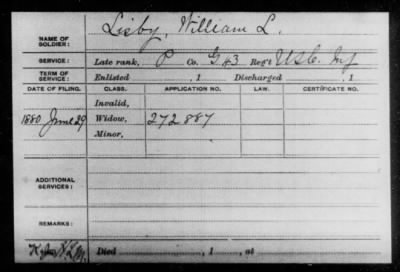 NAME OF SOLDIER: Lisby, William L.
SERVICE: Late rank, P Co. G 43 Reg't U S C. Inf
TERM OF SERVICE: Enlisted , 1 Discharged , 1
DATE OF FILING. CLASS. APPLICATION NO. LAW. CERTIFICATE NO.
Invalid,
1880 June 29 Widow, 272887
Minor,
ADDITIONAL SERVICES:
REMARKS:
Died , 1 , at